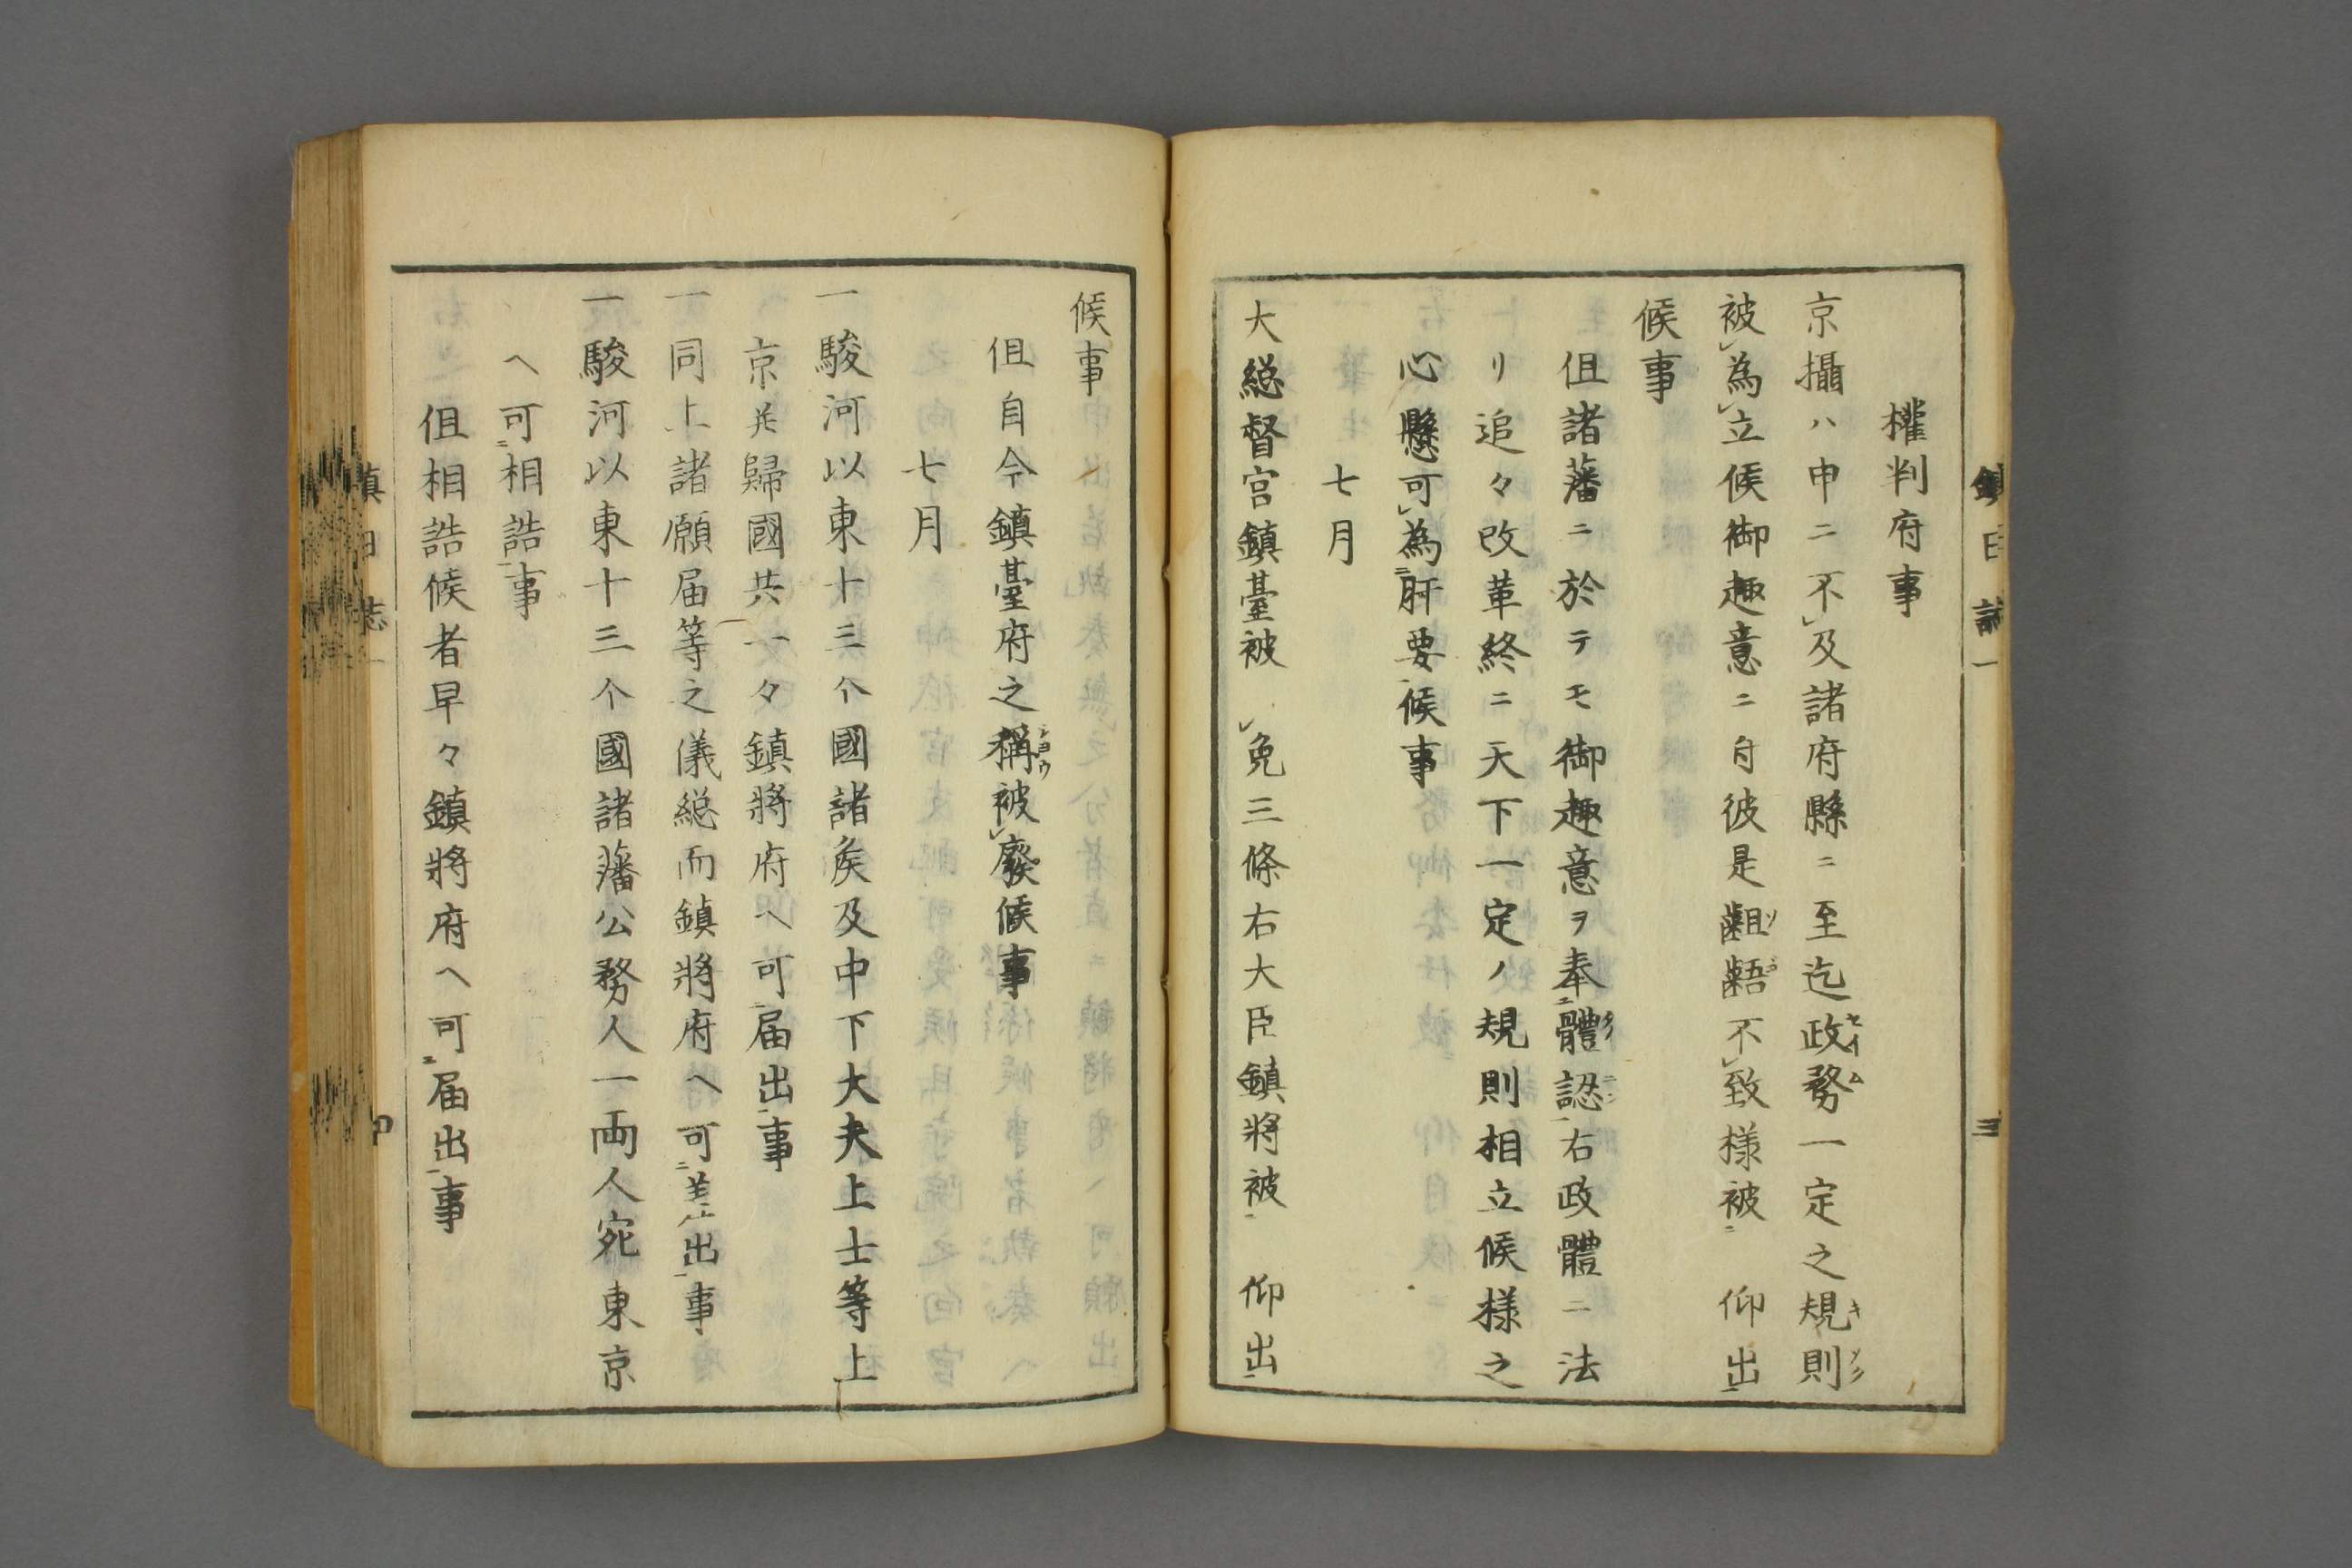 鎮日誌一
三
權判府事
京攝ハ申ニ不レ及諸府縣ニ至迄政務一定之規則
被レ為レ立候御趣意ニ付彼是齟齬不レ致様被二 仰出一
候事
但諸藩ニ於テモ御趣意ヲ奉二體認一右政體ニ法
リ追々改革終ニ天下一定ノ規則相立候様之
心懸可レ為二肝要一候事
七月
大総督宮鎮臺被 レ免三條右大臣鎮將被二 仰出一
候事
但自今鎮臺府之稱被レ廢候事
七月
一駿河以東十三个國諸矦及中下大夫上士等上
京并歸國共一々鎮將府ヘ可二届出一事
一同上諸願届等之儀総而鎮將府ヘ可二差出一事
一駿河以東十三个國諸藩公務人一両人宛東京
ヘ可二相詰一事
但相詰候者早々鎮將府ヘ可二届出一事